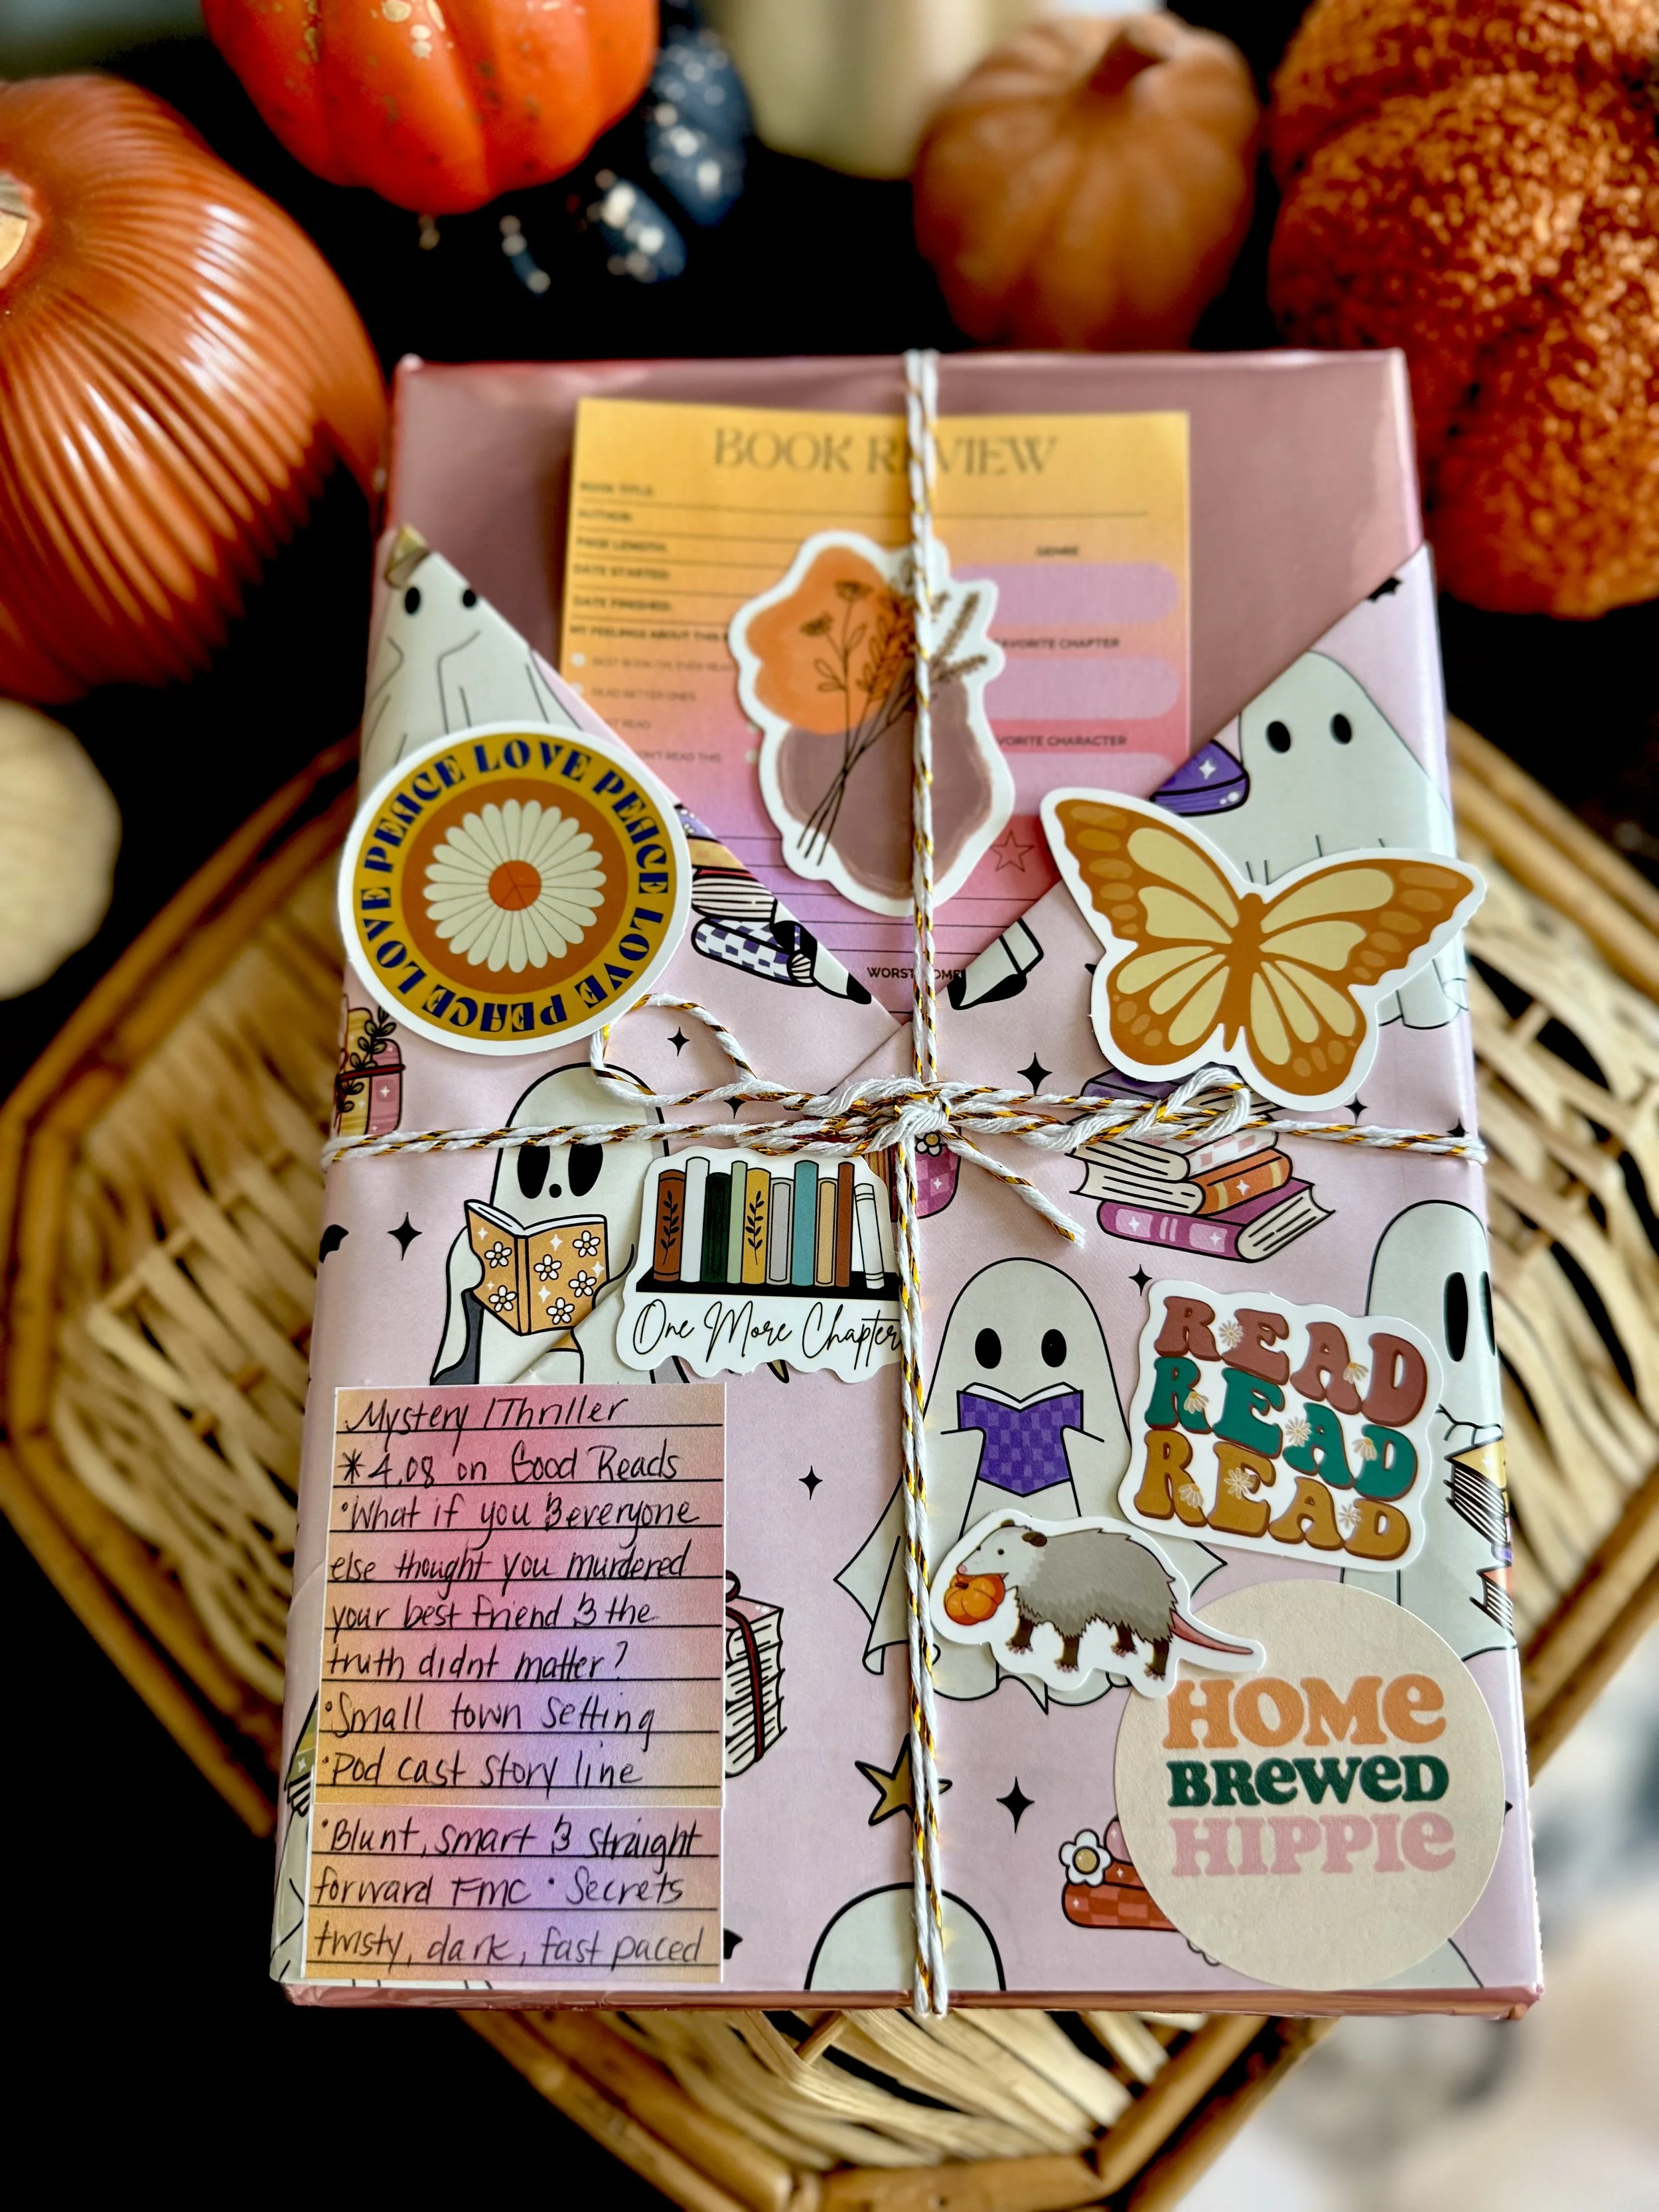 BOOK REVIEW
BOOK TITLE:
AUTHOR:
PAGE LENGTH:
GENRE
DATE STARTED:
DATE FINISHED:
MY FEELINGS ABOUT THIS
FAVORITE CHAPTER
BEST BOOK I'VE EVER READ
READ BETTER ONES
READ
FAVORITE CHARACTER
READ THIS
LOVE PEACE LOVE PEACE LOVE PEACE LOVE PEACE
WORST
One More Chapter
READ
READ
READ
Mystery / Thriller
*4.08 on Good Reads
•What if you & everyone
else thought you murdered
your best friend & the
truth didnt matter?
•Small town setting
•Pod cast story line
•Blunt, smart & straight
forward FMC • Secrets
twisty, dark, fast paced
HOME
BREWED
HIPPIE